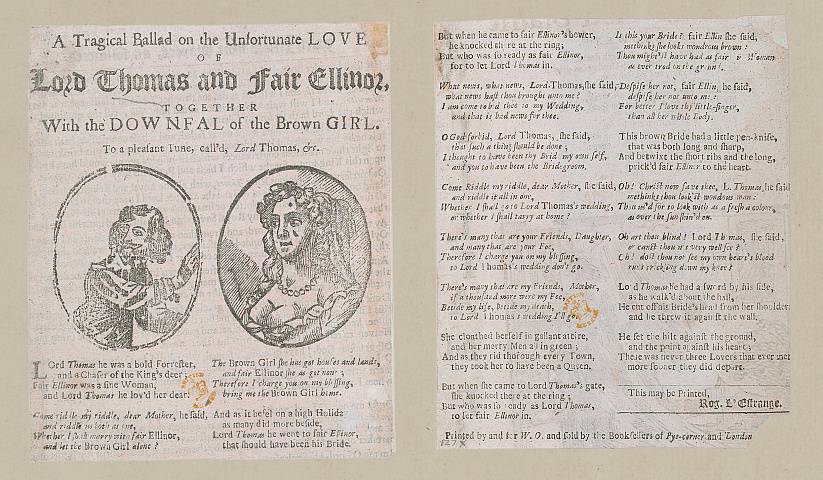 A Tragical Ballad on the Unfortunate LOVE
OF
Lord Thomas and Fair Ellinor,
TOGETHER
With the DOWNFAL of the Brown GIRL.
To a pleasant Tune, call'd, Lord Thomas, &c.
LOrd Thomas he was a bold Forrester,
and a Chaser of the King's deer;
Fair Ellinor was a fine Woman,
and Lord Thomas he lov'd her dear.
Come riddle my riddle, dear Mother, he said,
and riddle us both as one,
Whether I shall marry with fair Ellinor,
and let the Brown Girl alone?
The Brown Girl she has got houses and lands,
and fair Ellinor she as got none;
Therefore I charge you on my blessing,
bring me the Brown Girl home.
And as it befel on a high Holida
as many did more beside,
Lord Thomas he went to fair Ellinor,
that should have been his Bride.
But when he came to fair Ellinor's bower,
he knocked there at the ring;
But who was so ready as fair Ellinor,
for to let Lord Thomas in.
What news, what news, Lord Thomas, she said,
what news hast thou brought unto me?
I am come to bid thee to my Wedding,
and that is bad news for thee.
O God forbid, Lord Thomas, she said,
that such a thing should be done;
I thought to have been thy Brid my own self,
and you to have been the Bridegroom.
Come Riddle my riddle, dear Mother, she said,
and riddle it all in one,
Whether I shall go to Lord Thomas's wedding,
or whether I shall tarry at home?
There's many that are your Friends, Daughter,
and many that are your Foe,
Therefore I charge you on my blessing,
to Lord Thomas's wedding don't go.
There's many that are my Friends, Mother,
if a thousand more were my Foe,
Betide my life, betide my death,
to Lord Thomas's wedding I'll go.
She cloathed herself in gallant attire,
and her merry Men all in green;
And as they rid thorough every Town,
they took her to have been a Queen.
But when she came to Lord Thomas's gate,
she knocked there at the ring;
But who was so ready as Lord Thomas,
to let fair Ellinor in.
Is this your Bride? fair Ellin she said,
methinks she looks wondrous brown:
Thou might'st have had as fair Woman
as ever trod on the
Despise her not, fair Ellin, he said,
despise her not unto me:
For better I love thy little-finger,
than all her whole Body.
This brown Bride had a little pen-knife,
that was both long and sharp,
And betwixt the short ribs and the long,
prick'd fair Ellinor to the heart.
Oh! Christ now save thee, L. Thomas, he said
methinks thou look'st wondrous wan:
Thou us'd for to look with as a fresh a colour,
as ever the sun shin'd on.
Oh art thou blind? Lord Th mas, she said,
or can'st thou n t very well see?
Oh! dost thou not see my own heart's blood
runs trickling down my knee?
Lord Thomas he had a sword by his side,
as he walk'd about the hall,
He cut off his Bride's head from her shoulder
and he threw it against the wall.
He set the hilt against the ground,
and the point against his heart;
There was never three Lovers that ever met
more sooner they did depart.
This may be Printed,
Rog. L'Estrange.
Printed by and for W. O. and sold by the Booksellers of Pye-corner and London